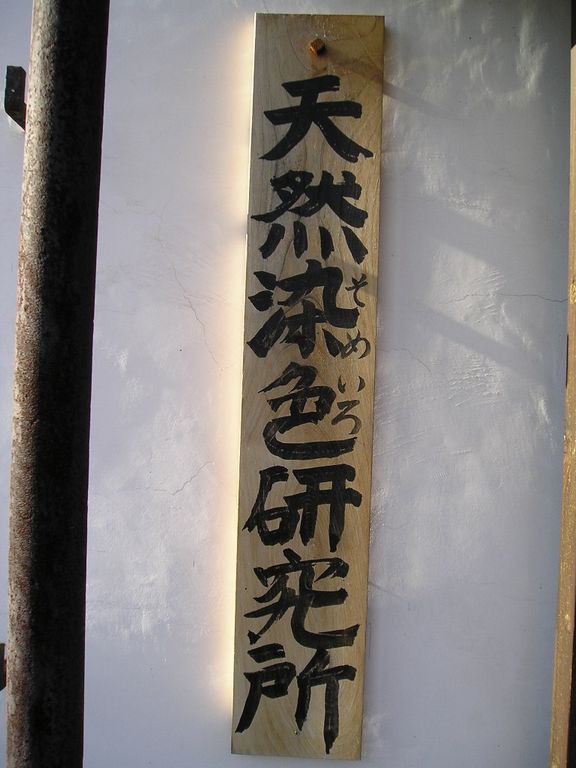 天然染色研究所
そめいろ